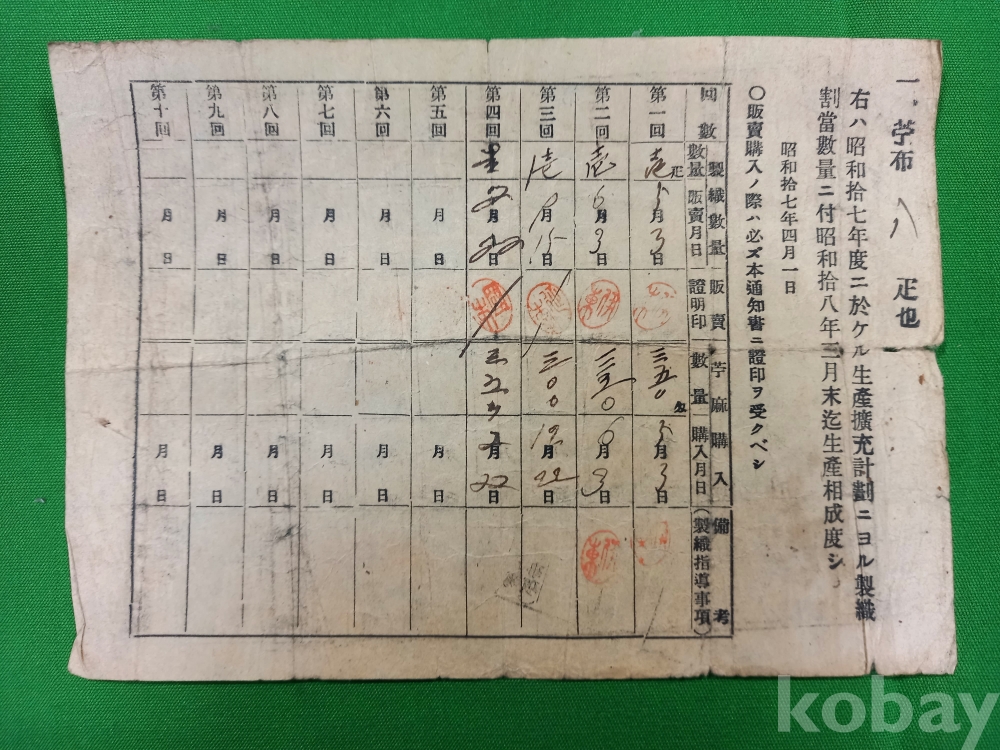 一、苧布 八 疋也
右ハ昭和拾七年度ニ於ケル生產擴充計劃ニヨル製織
割當數量ニ付昭和拾八年三月末迄生產相成度シ
昭和拾七年四月一日
〇販賣購入ノ際ハ必ズ本通知書ニ證印ヲ受クベシ
回數 製織數量 販賣 苧麻購入 備考
數量 販賣月日 證明印 數量 購入月日 (製織指導事項)
第一回 壱疋 5月3日 三五〇匁 5月3日
第二回 壱 6月3日 三三〇 6月3日
第三回 壱 月15日 三〇〇 12月22日
第四回 月22日 月22日
第五回 月日 月日
第六回 月日 月日
第七回 月日 月日
第八回 月日 月日
第九回 月日 月日
第十回 月日 月日
kobay